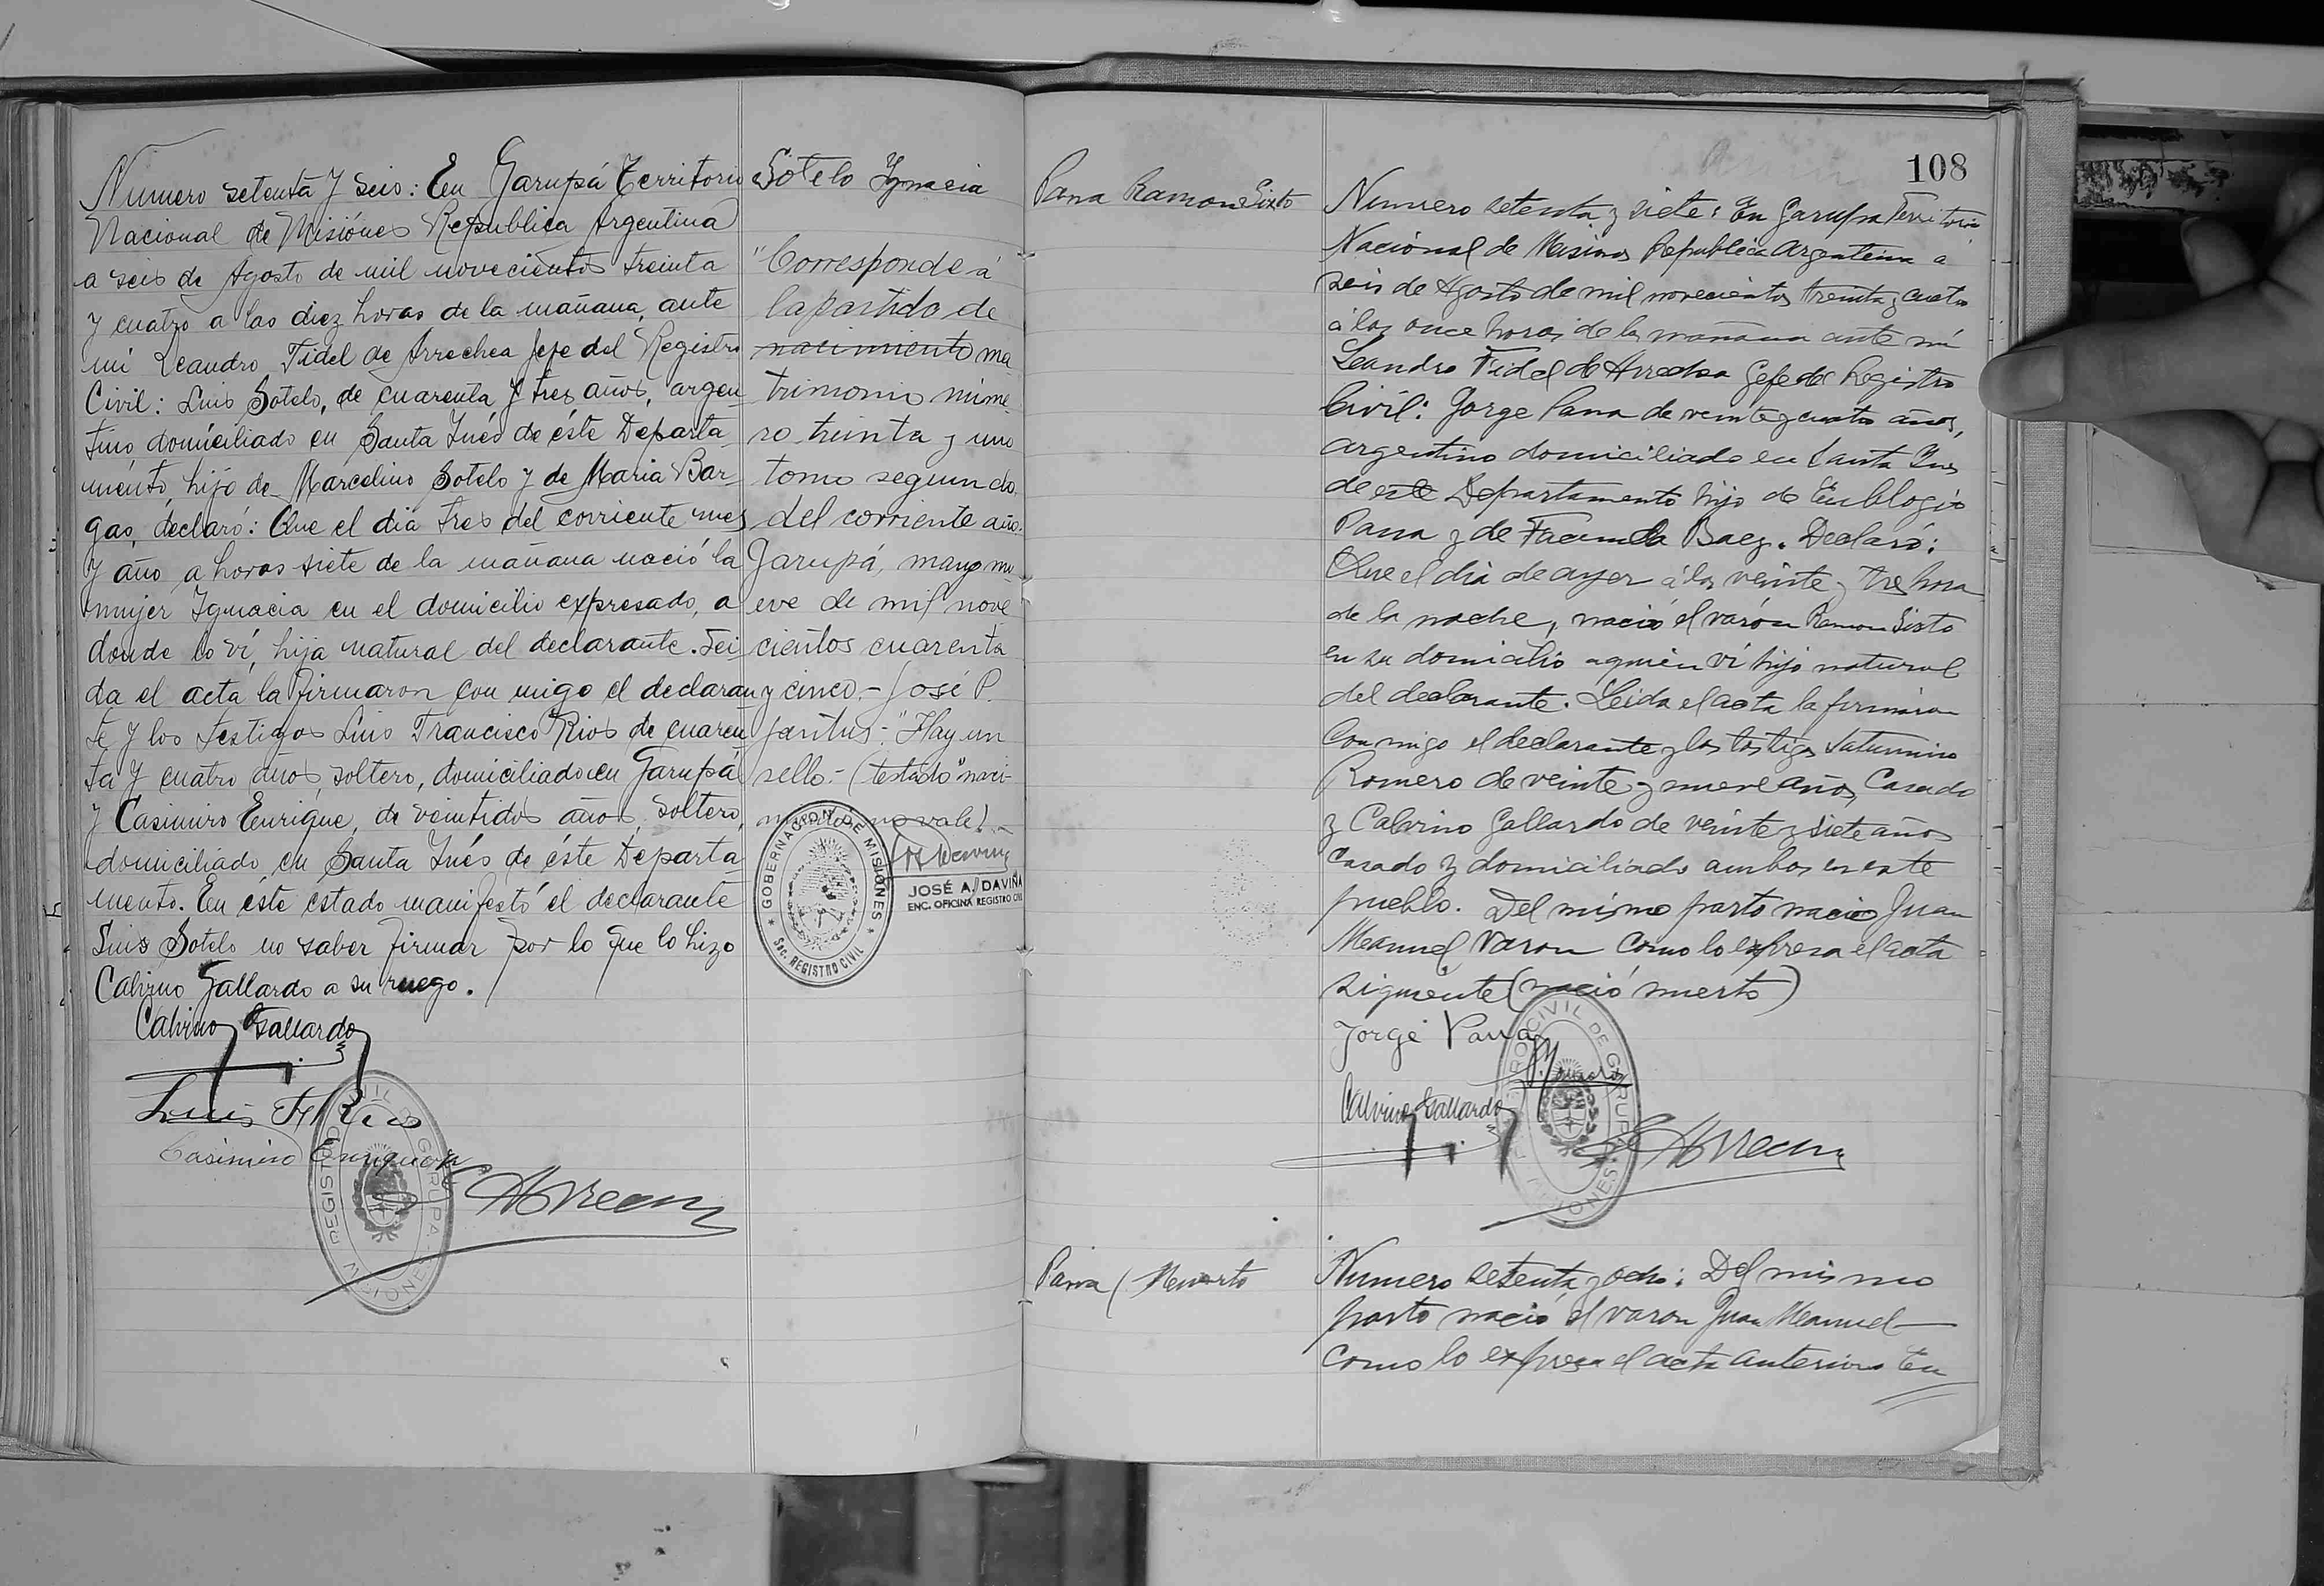 Numero setenta y seis: En Garupá Territorio
Nacional de Misiónes Republica Argentina
a seis de Agosto de mil novecientos treinta
y cuatro a las diez horas de la mañana, ante
mi Leandro Fidel de Arrechea Jefe del Registro
Civil: Luis Sotelo, de cuarenta y tres años, argen-
tino, domiciliado en Santa Inés de éste Departa-
mento, hijo de Marcelino Sotelo y de Maria Bar-
gas, declaró: Que el dia tres del corriente mes
y año a horas siete de la mañana nació la
mujer Ignacia en el domicilio expresado, a
donde lo ví, hija natural del declarante. Lei-
da el acta la firmaron con migo el declaran
te y los testigos Luis Francisco Rios de cuaren
ta y cuatro años, soltero, domiciliado en Garupá
y Casimiro Enrique, de veintidos años, soltero,
domiciliado en Santa Inés de éste Departa-
mento. En éste estado manifestó el declarante
Luis Sotelo no saber firmar por lo que lo hizo
Calvino Gallardo a su ruego.
Calvino Gallardo
Luis F Rios
Casimiro Enrique
REGISTRO CIVIL DE GARUPA - MISIONES
Sotelo Ygnacia
"Corresponde á
la partida de
nacimiento ma
trimonio núme-
ro treinta y uno
tomo segundo
del corriente año.
Garupá, mayo nu
eve de mil nove
cientos cuarenta
y cinco.- José P.
"Hay un
sello.- (testado "naci-
miento" no vale).-
GOBERNACION DE MISIONES
Sec. REGISTRO CIVIL
JOSÉ A. DAVIÑA
ENC. OFICINA REGISTRO CIVIL
108
Parra Ramon Sixto
Numero setenta y siete: En Garupa Territorio
Nacional de Misiones Republica Argentina a
seis de Agosto de mil novecientos treinta y cuatro
á las once horas de la mañana ante mi
Leandro Fidel de Arrechea Gefe del Registro
Civil: Jorge Parra de veinte y cuatro años,
argentino domiciliado en Santa Ines
de este Departamento hijo de Eublogio
Parra y de Facunda Baez. Declaró:
Que el dia de ayer á las veinte y tres hora
de la noche, nació el varón Ramon Sixto
en su domicilio a quien ví hijo natural
del declarante. Leida el acta la firmaron
Con migo el declarante y los testigos Saturnino
Romero de veinte y nueve años, Casado
y Calvino Gallardo de veinte y siete años
Casado y domiciliado ambos en este
pueblo. Del mismo parto nacio Juan
Manuel varon Como lo expresa el acta
siguiente (nació muerto)
Jorge Parra
Calvino Gallardo
REGISTRO CIVIL DE GARUPA MISIONES
Parra (Muerto
Numero setenta y ocho: Del mismo
parto nació el varon Juan Manuel
Como lo expresa el acta anterior En